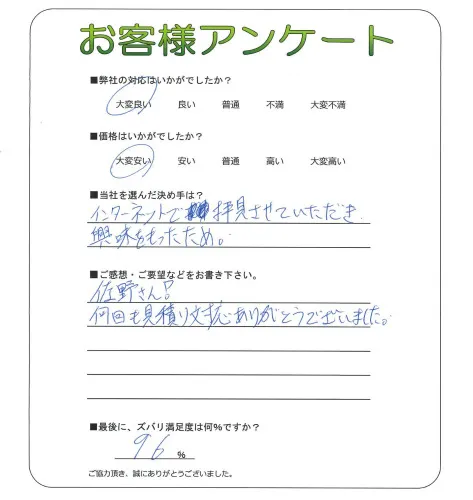 お客様アンケート
■弊社の対応はいかがでしたか？
大変良い 良い 普通 不満 大変不満
■価格はいかがでしたか？
大変安い 安い 普通 高い 大変高い
■当社を選んだ決め手は？
インターネットで拝見させていただき
興味をもったため。
■ご感想・ご要望などをお書き下さい。
佐野さん!
何回も見積り対応ありがとうございました。
■最後に、ズバリ満足度は何％ですか？
96 %
ご協力頂き、誠にありがとうございました。